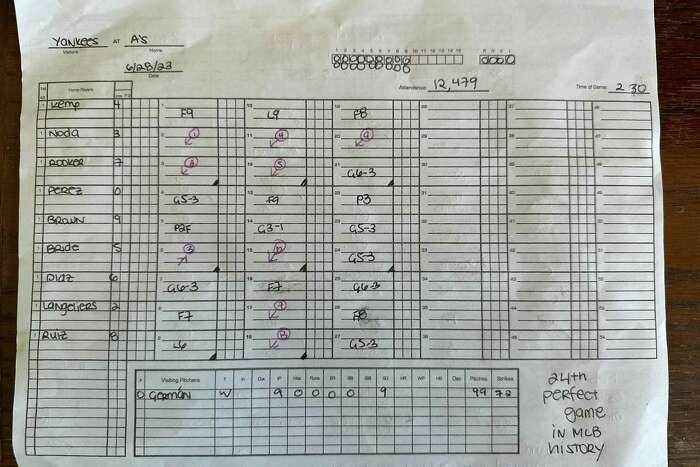 YANKEES AT A's
Visitors Home
6/28/23
Date
1 2 3 4 5 6 7 8 9 10 11 12 13 14 15
0 0 0 0 0 0 0 0 0
0 0 0 0 0 0 0 0 0
R H E L
0 0 0 0
Attendance: 12,479
Time of Game: 2 30
Home Players
Kemp 4 F9 L9 F8
Noda 3 1 4 9
Rooker 7 2 5 G6-3
Perez 0 G5-3 F9 P3
Brown 9 P2F G3-1 G5-3
Bride 5 3 6 G5-3
Diaz 6 G6-3 F7 G6-3
Langeliers 2 F7 7 F8
Ruiz 8 L6 8 G5-3
# Visiting Pitchers T In Out IP Hits Runs ER BB SO HR WP HB Dec Pitches Strikes
0 Germán W 9 0 0 0 0 9 99 72
24th
perfect
game
in MLB
history